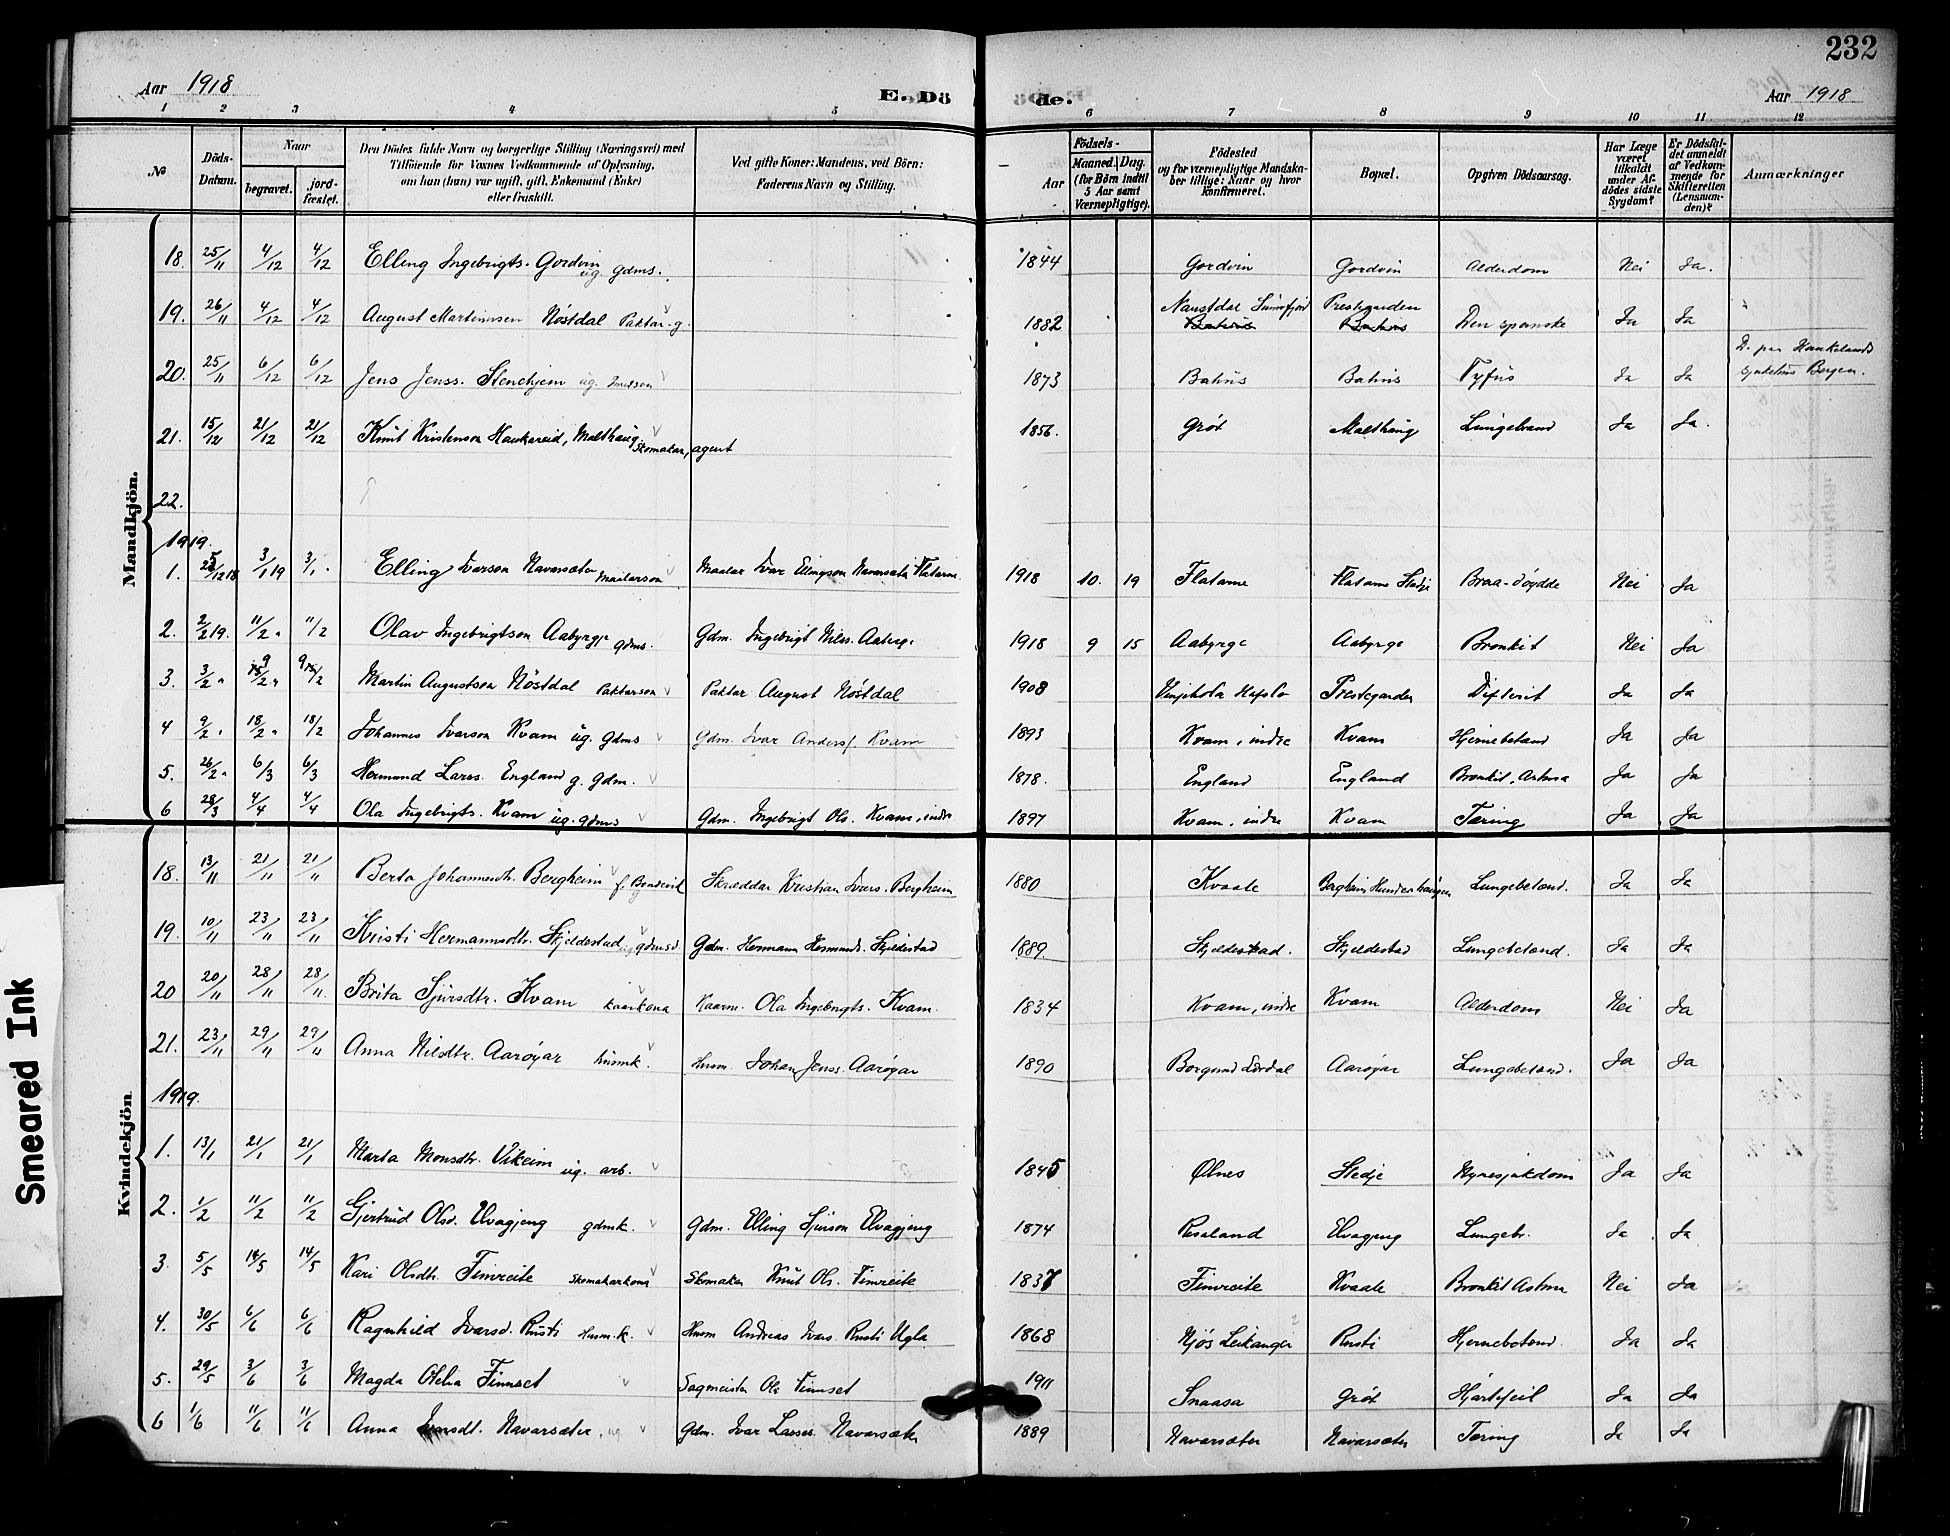 232
Aar 1918
E. Döde.
Aar 1918
1 2 3 4 5 6 7 8 9 10 11 12
No
Döds-Datum.
Naar
begravet.
jordfæstet.
Den Dödes fulde Navn og borgerlige Stilling (Næringsvei) med
Tilföiende for Voxnes Vedkommende af Oplysning,
om han (hun) var ugift, gift, Enkemand (Enke)
eller fraskilt.
Ved gifte Koner: Mandens, ved Börn:
Faderens Navn og Stilling.
Födsels-
Aar
Maaned. Dag.
(for Börn indtil
5 Aar samt
Værnepligtige).
Födested
og for værnepligtige Mandskaber tillige: Naar og hvor
konfirmeret.
Bopæl.
Opgiven Dödsaarsag.
Har Læge
været
tilkaldt
under Afdödes sidste
Sygdom?
Er Dödsfaldet anmeldt
af Vedkommende for
Skifteretten
(Lensmanden)?
Anmærkninger
Mandkjön.
18. 25/11 4/12 4/12 Elling Ingebrigts. Gordvin ug. gdms. 1844 Gordvin Gordvin Alderdom Nei Ja.
19. 26/11 4/12 4/12 August Martinussen Nöstdal Paktar g. 1882 Naustdal Sunnfjord Prestegarden Den spanske Ja Ja
20. 25/11 6/12 6/12 Jens Jenss. Stenehjem ug. 1873 Bahus Bahus Tyfus Ja Ja D. paa Haukelands sjukehus Bergen.
21. 15/12 21/12 21/12 Knut Kristenson Haukareid, Malthaug Skomakar, agent 1856. Gröt Malthaug Lungebrand Ja Ja.
22.
1919.
1. 12 18 3/1 19 3/1 Elling Ivarson Navarsæter Maalarson Maalar Ivar Ellingson Navarsæte Flatame 1918 10. 19 Flatame Flatame Stedje Braa-döydde Nei Ja
2. 2/2 19. 11/2 11/2 Olav Ingebrigtson Aabyrge gdms. Gdm. Ingebrigt Nilss. Aaberge 1918 9 15 Aabyrge Aabyrge Bronkit Nei Ja
3. 3/2 Martin Augustson Nöstdal Paktarson Paktar August Nöstdal 1908 Hafslo Prestegarden Difterit Ja Ja
4 9/2 18/2 18/2 Johannes Ivarson Kvam ug. gdms Gdm. Ivar Anders. Kvam 1893 Kvam, indre Kvam Hjernebetend Ja Ja
5. 26/2 6/3 6/3 Hermund Larss. England g. gdm. 1878. England England Bronkit, Astma Ja Ja
6 28/3 4/4 4/4 Ola Ingebrigts. Kvam ug. gdms Gdm. Ingebrigt Ols. Kvam, indre 1897 Kvam, indre Kvam Tæring Ja Ja
Kvindekjön
18. 13/11 21/11 21/11 Berta Johannesdtr. Bergheim f. Bondevik Skræddar Kristian Ivars. Bergheim 1880 Kvaale Bergheim Hundershaugen Lungebetend. Ja Ja
19. 10/11 23/11 23/11 Kristi Hermannsdtr. Skjeldestad ug gdmsd Gdm. Hermann Hermunds. Skjeldestad 1889. Skjeldestad. Skjeldestad Lungebetend. Ja Ja
20 20/11 28/11 28/11 Brita Sjursdtr. Kvam kaarkona Kaarm. Ola Ingebrigts. Kvam. 1834 Kvam, indre Kvam Alderdom Nei Ja
21. 23/11 29/11 29/11 Anna Nilsdtr. Aaröyar husmk. Husm. Johan Jenss. Aaröyar 1890 Borgund Lærdal Aaröyar Lungebetend. Ja Ja
1919.
1. 13/1 21/1 21/1 Marta Monsdtr. Vikeim ug. arb. 1845 Ölnes Stedje Nyresjukdom Ja Ja
2. 1/2 11/2 11/2 Gjertrud Olsd. Elvagjeng gdmk. Gdm. Elling Sjurson Elvagjeng 1874 Rosaland Elvagjeng Lungebr. Ja Ja
3. 5/5 14/5 14/5 Kari Olsdtr. Timreite Skomakarkona Skomaker Knut Ols. Timreite 1837 Timreite Kvaale Bronkit Astma Nei Ja
4. 30/5 6/6 6/6 Ragnhild Ivarsd. Rusti Husm. k. Husm Andreas Ivars. Rusti Ugla 1868 Njös Leikanger Rusti Hjernebetend Ja Ja
5. 29/5 3/6 3/6 Magda Otelia Finnset Sagmeister Ola Finnset 1911 Snaasa Gröt Hjartefeil Ja Ja
6 1/6 11/6 11/6 Anna Navarsæter ug Gdm. Ivar Lasses Navarsæter 1889 Navarsæter Navarsæter Tæring Ja Ja
Smeared Ink